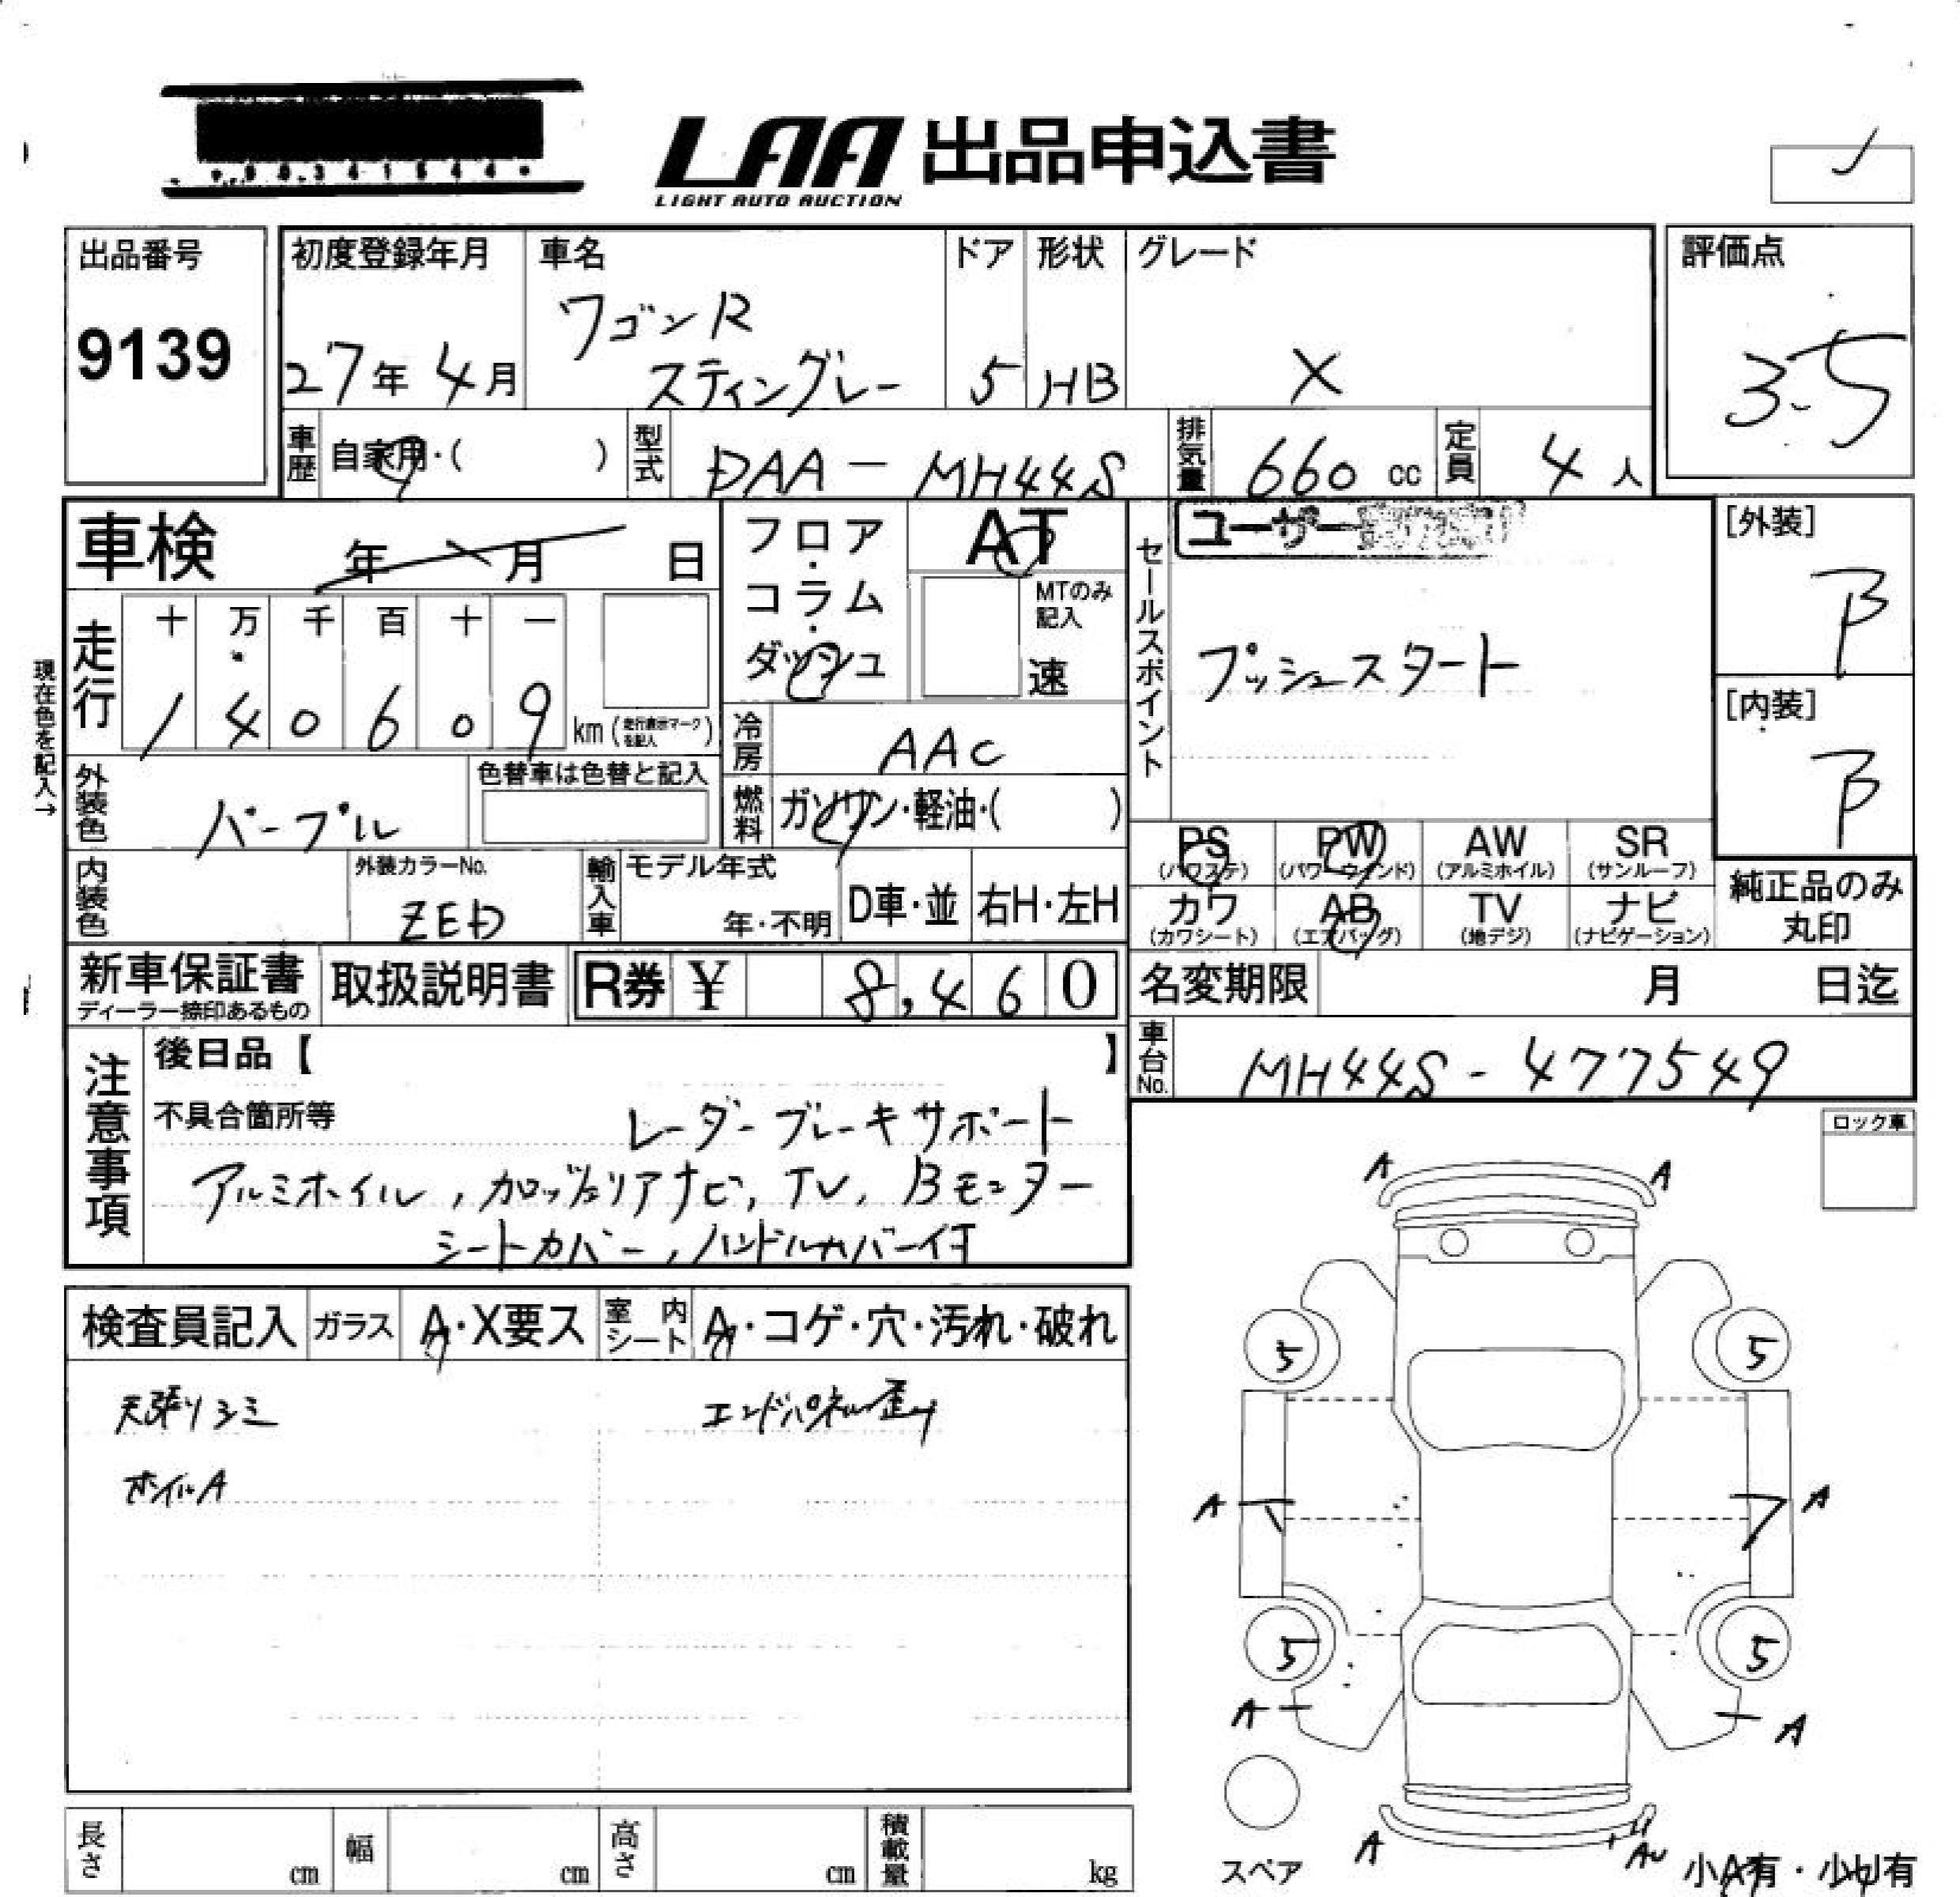 0 0 3 4 1 5 4 4
LAA 出品申込書
LIGHT AUTO AUCTION
出品番号 初度登録年月 車名 ドア 形状 グレード 評価点
9139 27年 4月 ワゴンR スティングレー 5 HB X 3.5
車歴 自家用・( ) 型式 DAA-MH44S 排気量 660 cc 定員 4 人
車検 年 月 日 フロア・コラム・ダッシュ AT MTのみ記入 速
セールスポイント ユーザー
プッシュスタート
[外装] B
[内装] B
現在色を記入→
走行 十 万 千 百 十 一
1 4 0 6 0 9 km (走行表示マークを記入)
冷房 AAC
外装色 パープル 色替車は色替と記入 燃料 ガソリン・軽油・( )
PS (パワステ) PW (パワーウインド) AW (アルミホイル) SR (サンルーフ)
カワ (カワシート) AB (エアバッグ) TV (地デジ) ナビ (ナビゲーション)
純正品のみ丸印
内装色 外装カラーNo. ZED 輸入車 モデル年式 年・不明 D車・並 右H・左H
新車保証書 ディーラー捺印あるもの 取扱説明書 R券 ¥ 8,460 名変期限 月 日迄
車台No. MH44S-477549
注意事項 後日品【 】
不具合箇所等 レーダーブレーキサポート
アルミホイル, カロッツェリアナビ, TV, Bモニター
シートカバー, ハンドルカバー付
ロック車
検査員記入 ガラス A・X要ス 室内シート A・コゲ・穴・汚れ・破れ
天張りシミ エンドパネル歪み
ホイルA
A A
5 5
A A
5 5
A A
スペア
A AU
小A有・小U有
長さ cm 幅 cm 高さ cm 積載量 kg